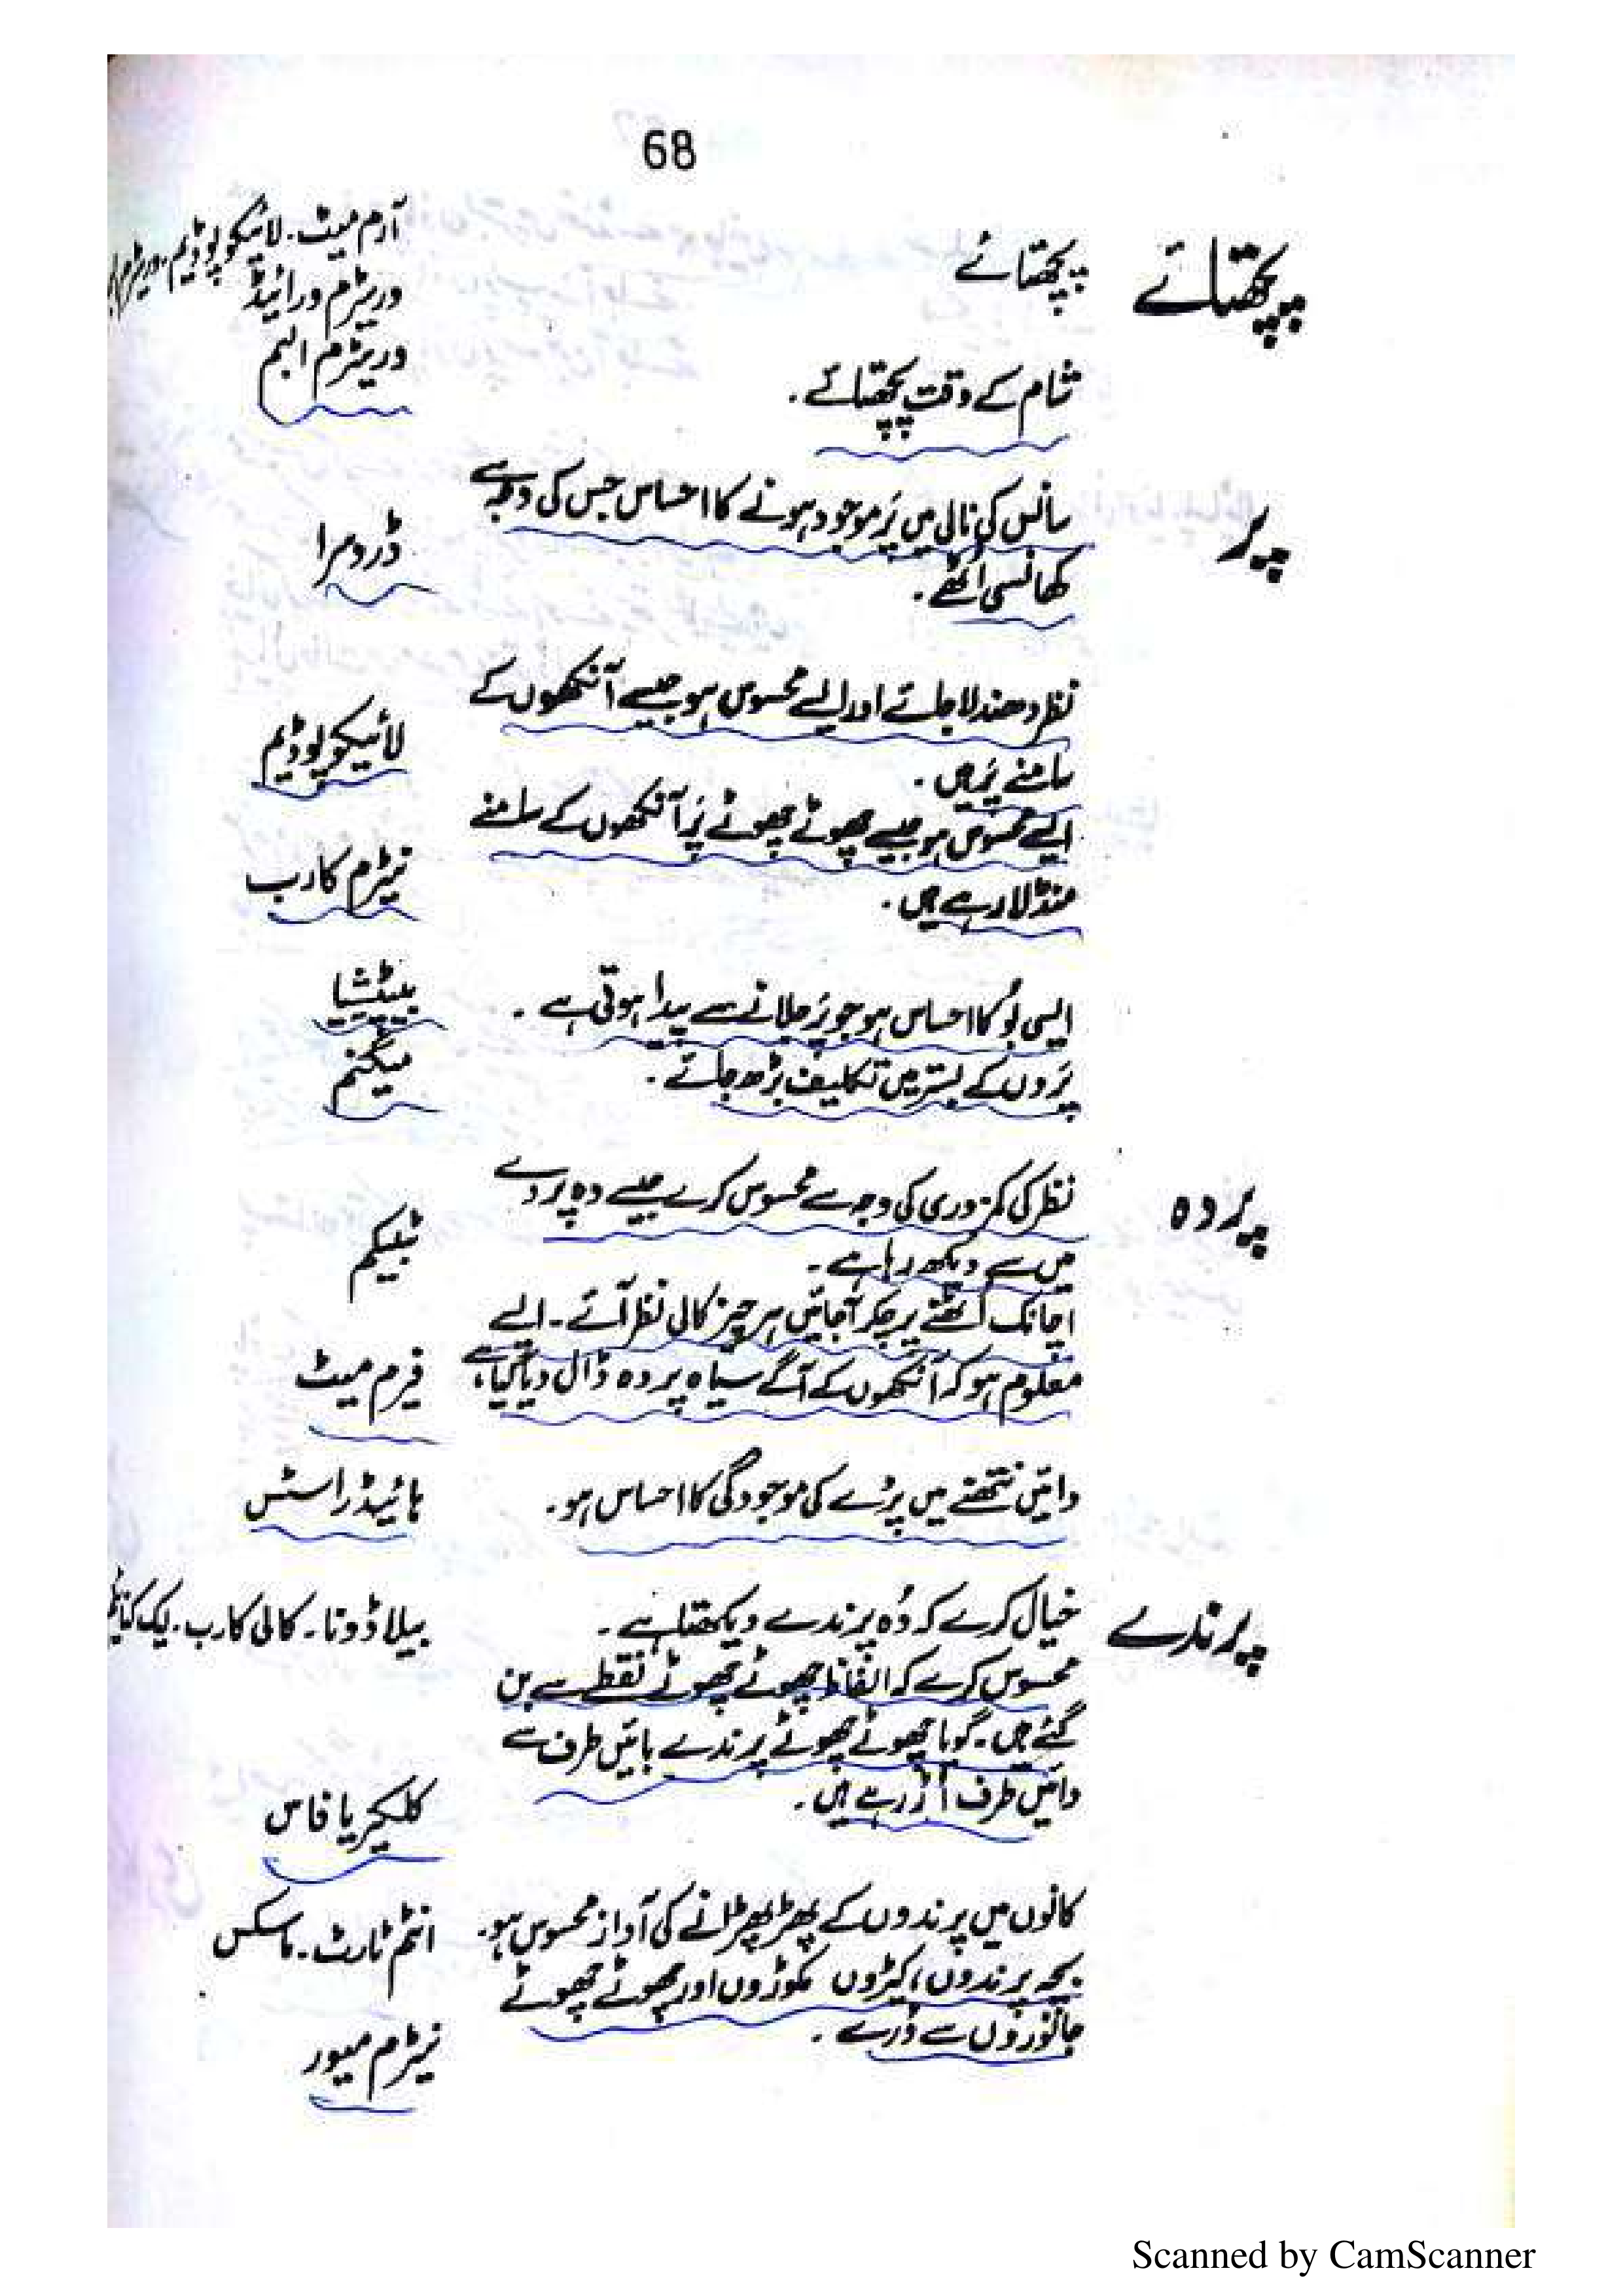 68
پچھتائے
پچھتائے
آرم میٹ۔ لائیکوپوڈیم۔
وریٹرم ورائیڈ
وریٹرم البم
شام کے وقت پچھتائے۔
پر
سانس کی نالی میں پَر موجود ہونے کا احساس جس کی وجہ سے
کھانسی اٹھے۔
ڈروسرا
نظر دھندلا جائے اور ایسے محسوس ہو جیسے آنکھوں کے
سامنے پَر ہیں۔
لائیکوپوڈیم
ایسے محسوس ہو جیسے چھوٹے چھوٹے پَر آنکھوں کے سامنے
منڈلا رہے ہیں۔
نیٹرم کارب
ایسی بُو کا احساس ہو جو پَر جلانے سے پیدا ہوتی ہے۔
بیپٹیشیا
پَروں کے بستر میں تکلیف بڑھ جائے۔
میگنم
پردہ
نظر کی کمزوری کی وجہ سے محسوس کرے جیسے وہ پردے
میں سے دیکھ رہا ہے۔
ٹبیکم
اچانک اُٹھنے پر چکر آجائیں ہر چیز کالی نظر آئے۔ ایسے
معلوم ہو کہ آنکھوں کے آگے سیاہ پردہ ڈال دیا گیا ہے
فیرم میٹ
دائیں نتھنے میں پردے کی موجودگی کا احساس ہو۔
ہائیڈراسٹس
پرندے
خیال کرے کہ وُہ پرندے دیکھتا ہے۔
بیلاڈونا۔ کالی کارب۔
محسوس کرے کہ الفاظ چھوٹے چھوٹے نقطے سے بن
گئے ہیں۔ گویا چھوٹے چھوٹے پرندے بائیں طرف سے
دائیں طرف اُڑ رہے ہیں۔
کلکیریا فاس
کانوں میں پرندوں کے پھڑپھڑانے کی آواز محسوس ہو۔
انٹم ٹارٹ۔ ماسکس
بچہ پرندوں، کیڑوں مکوڑوں اور چھوٹے چھوٹے
جانوروں سے ڈرے۔
نیٹرم میور
Scanned by CamScanner